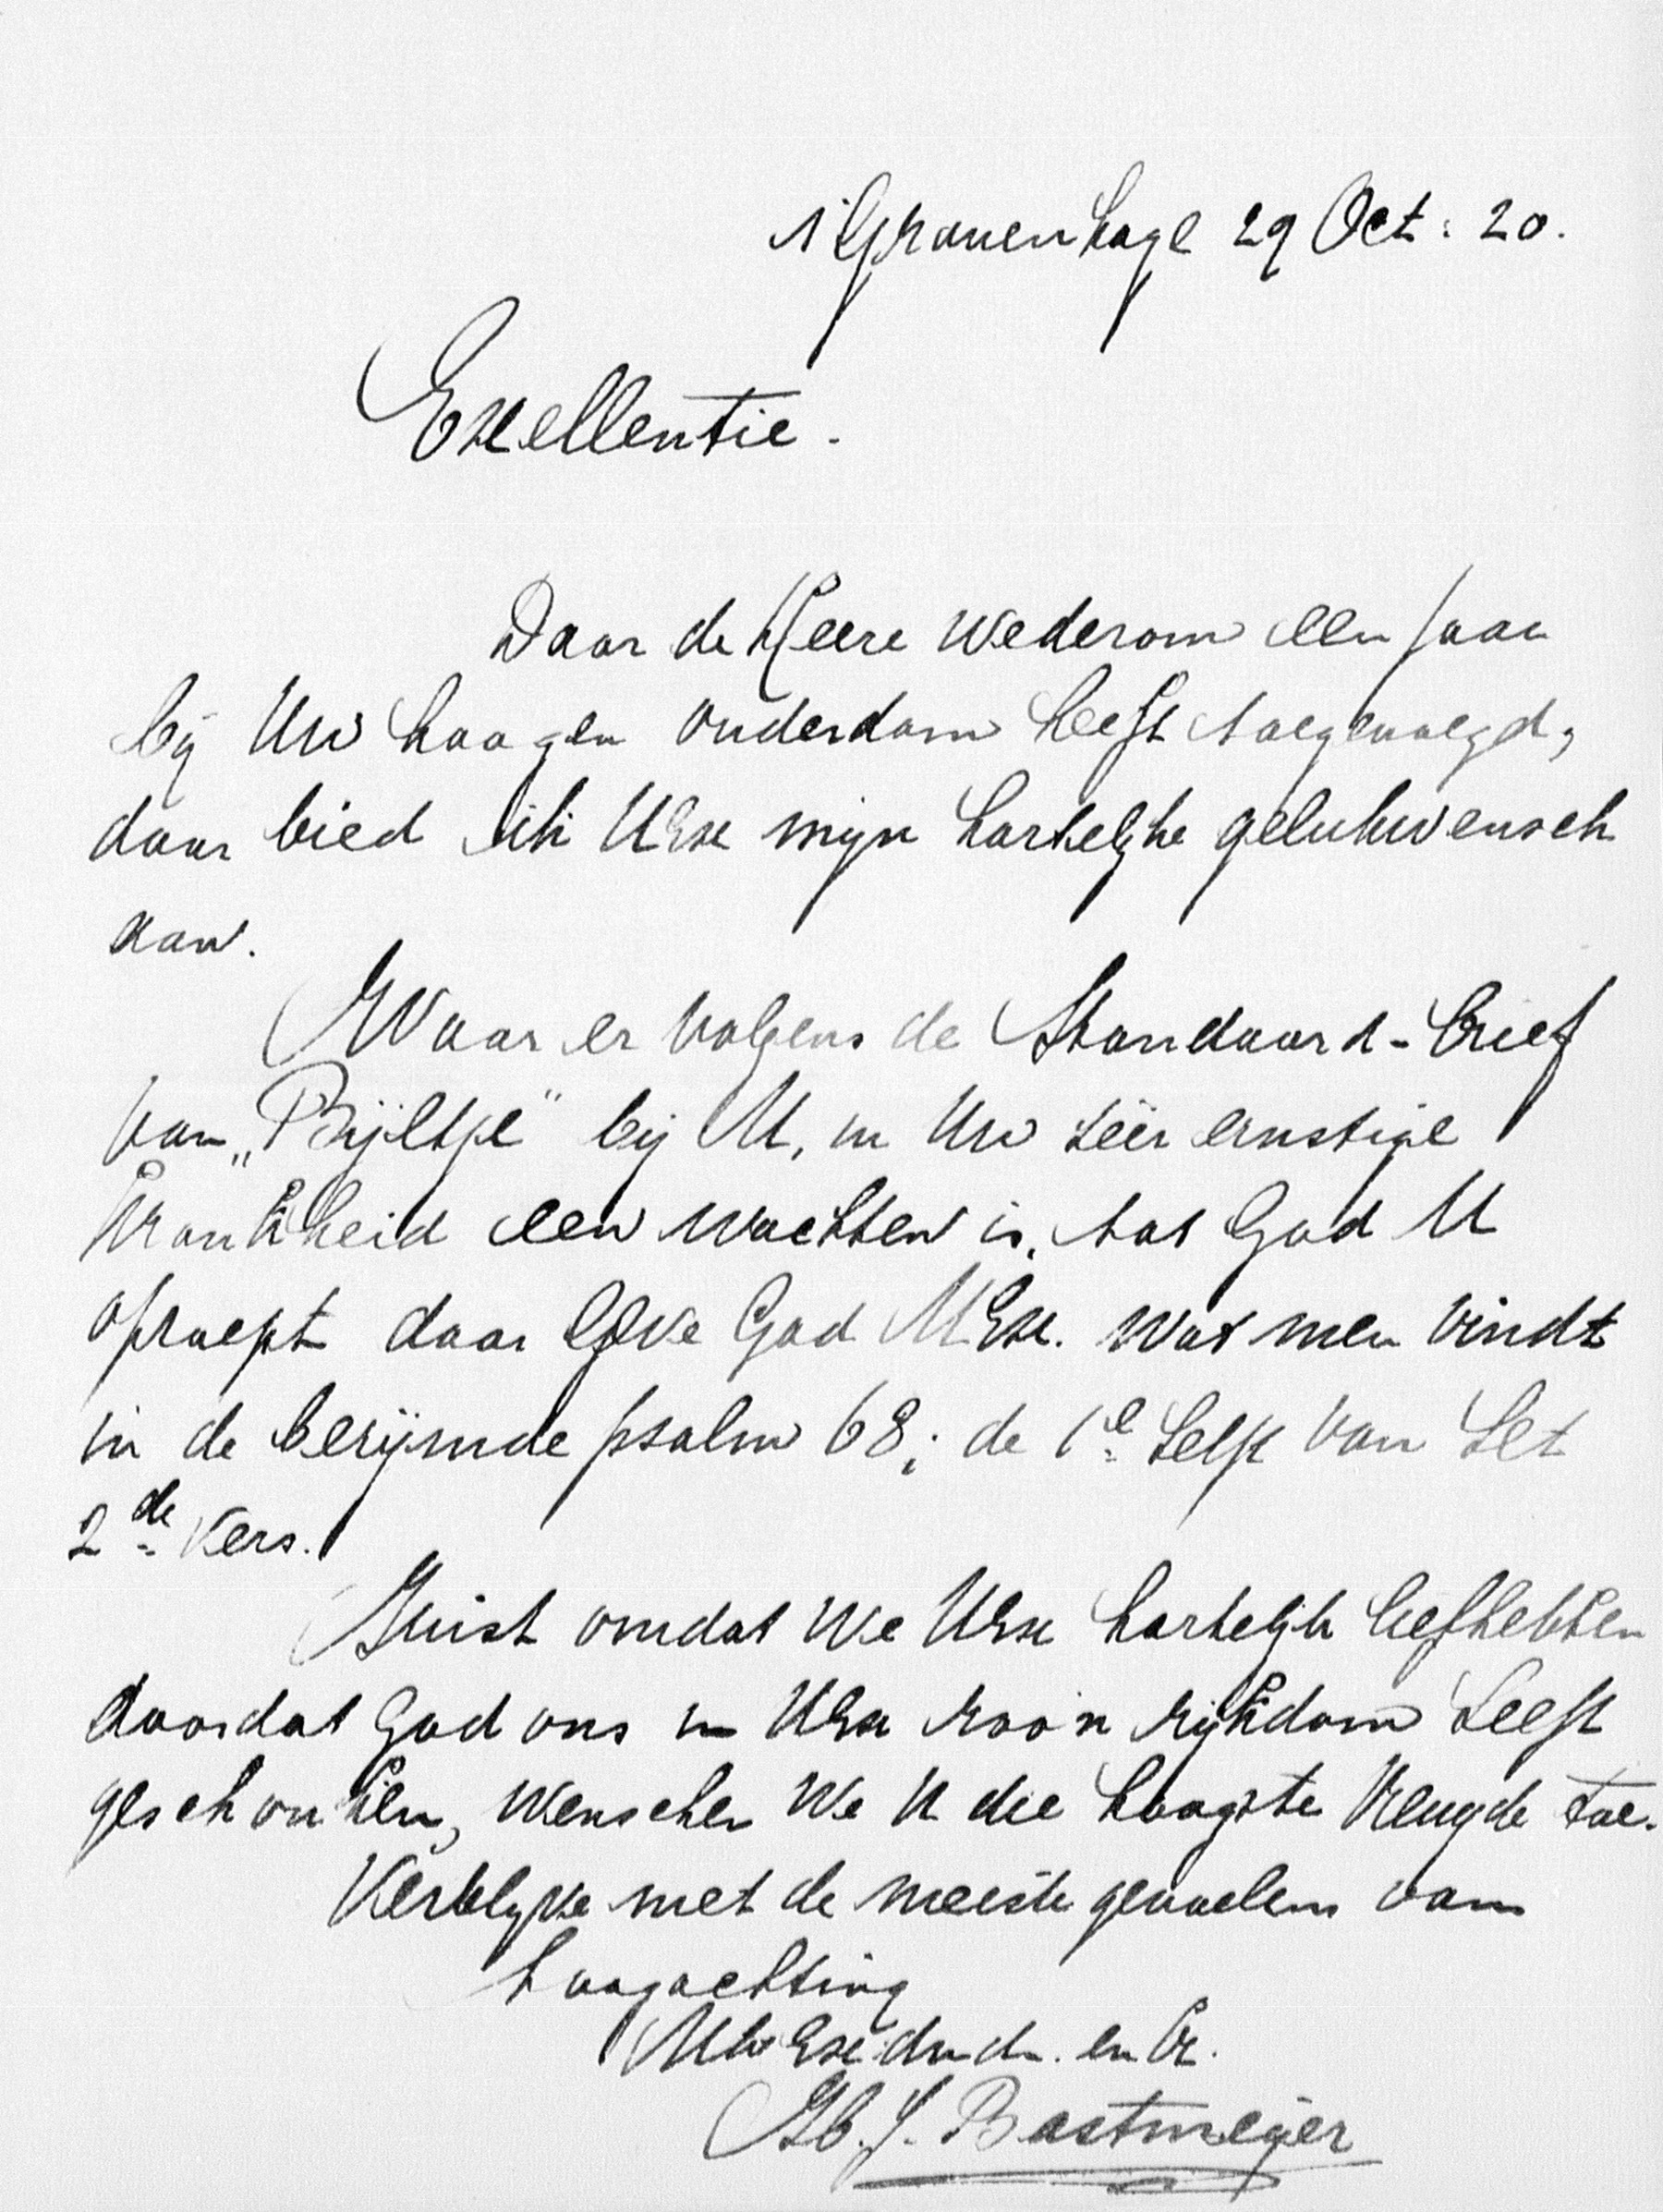 's Gravenhage 29 Oct: 20.
Exellentie.
Daar de Heere wederom een jaar
bij Uw hoogen ouderdom heeft toegevoegd,
daar bied ik UExe mijn hartelijke gelukwensch
aan.
Waar er volgens de Standaard-brief
van „Bijltje" bij U, in Uw zéér ernstige
krankheid een wachten is, tot God U
oproept daar geve God UExe. wat men vindt
in de berijmde psalm 68; de 1e helft van het
2de vers.
Juist omdat we UExe hartelijk liefhebben
doordat God ons in UExe zoo'n rijkdom heeft
geschonken, wenschen we U die hoogste vreugde toe.
Verblijve met de meeste gevoelens van
hoogachting
Uw Exe dnd. en br.
J. Bastmeijer